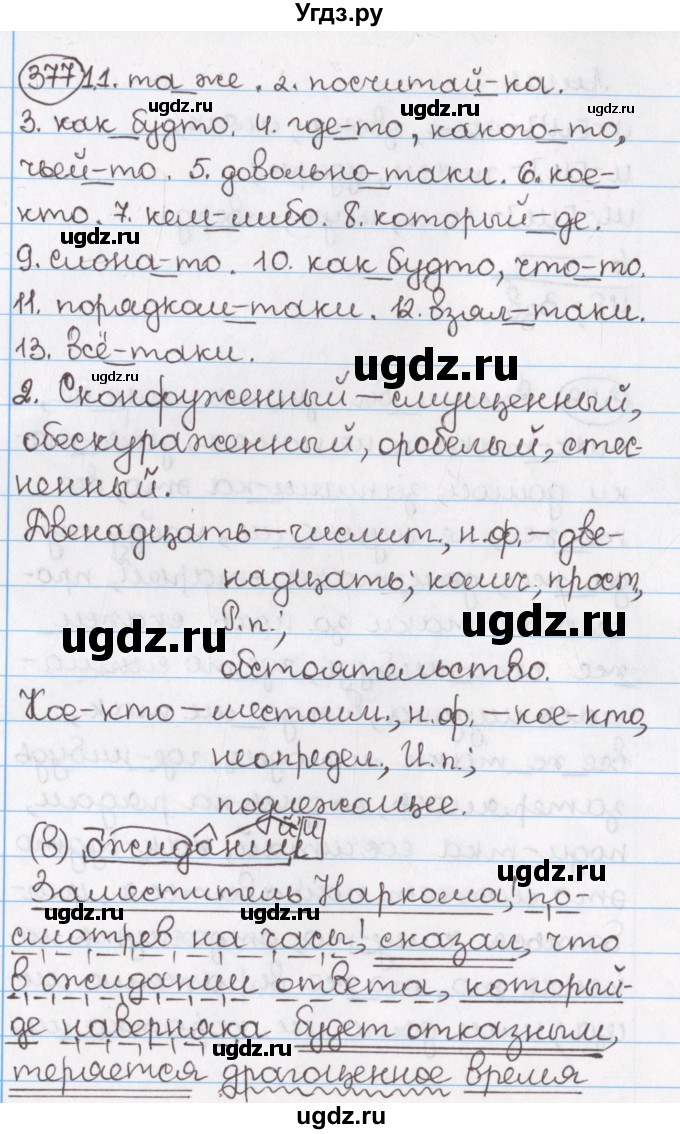 Угдз.ру
377 1 1. та же. 2. посчитай-ка.
3. как будто. 4. где-то, какого-то,
чьей-то. 5. довольно-таки. 6. кое-
кто. 7. кем-либо. 8. который-де.
9. слона-то. 10. как будто, что-то.
11. порядком-таки. 12. взял-таки.
13. всё-таки.
2. Сконфуженный – смущенный,
обескураженный, оробелый, стес-
ненный.
Двенадцать – числит., н.ф. – две-
надцать; колич., прост,
Р.п.;
обстоятельство.
Кое-кто – местоим., н.ф. – кое-кто,
неопредел., И.п.;
подлежащее.
(В) ожидании
Заместитель Наркома, по-
смотрев на часы, сказал, что
в ожидании ответа, который-
де наверняка будет отказным,
теряется драгоценное время
ugdz.ru
ugdz.ru
ugdz.ru
ugdz.ru
ugdz.ru
ugdz.ru
ugdz.ru
ugdz.ru
ugdz.ru
ugdz.ru
ugdz.ru
ugdz.ru
ugdz.ru
ugdz.ru